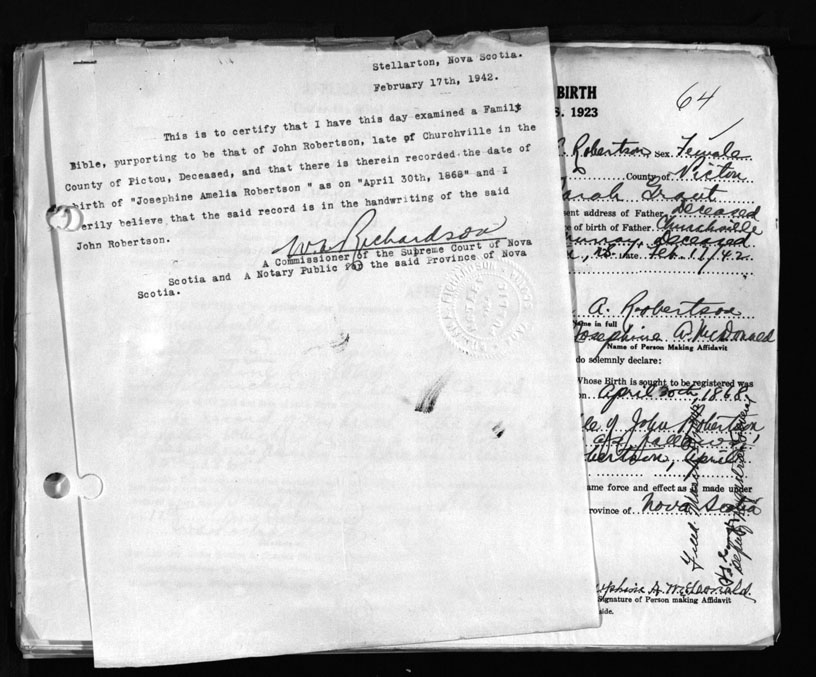 Stellarton, Nova Scotia.
February 17th, 1942.
This is to certify that I have this day examined a Family
Bible, purporting to be that of John Robertson, late of Churchville in the
County of Pictou, Deceased, and that there is therein recorded the date of
birth of "Josephine Amelia Robertson " as on "April 30th, 1868" and I
verily believe that the said record is in the handwriting of the said
John Robertson.
Richardson
A Commissioner of the Supreme Court of Nova
Scotia and A Notary Public for the said Province of Nova
Scotia.
BIRTH
S. 1923
64
Robertson Sex. Female
County of Pictou
Sarah Grant
ent address of Father, Deceased
e of birth of Father. Churchville
Deceased
Date. Feb. 17/42.
A. Robertson
me in full
Josephine A. McDonald
Name of Person Making Affidavit
do solemnly declare:
Whose Birth is sought to be registered was
on April 30th, 1868.
le of John Robertson
as follows:
Robertson, April
ame force and effect as if made under
rovince of Nova Scotia
Josephine A. McDonald.
Signature of Person making Affidavit
side.
Filed. March
Deputy Registrar General